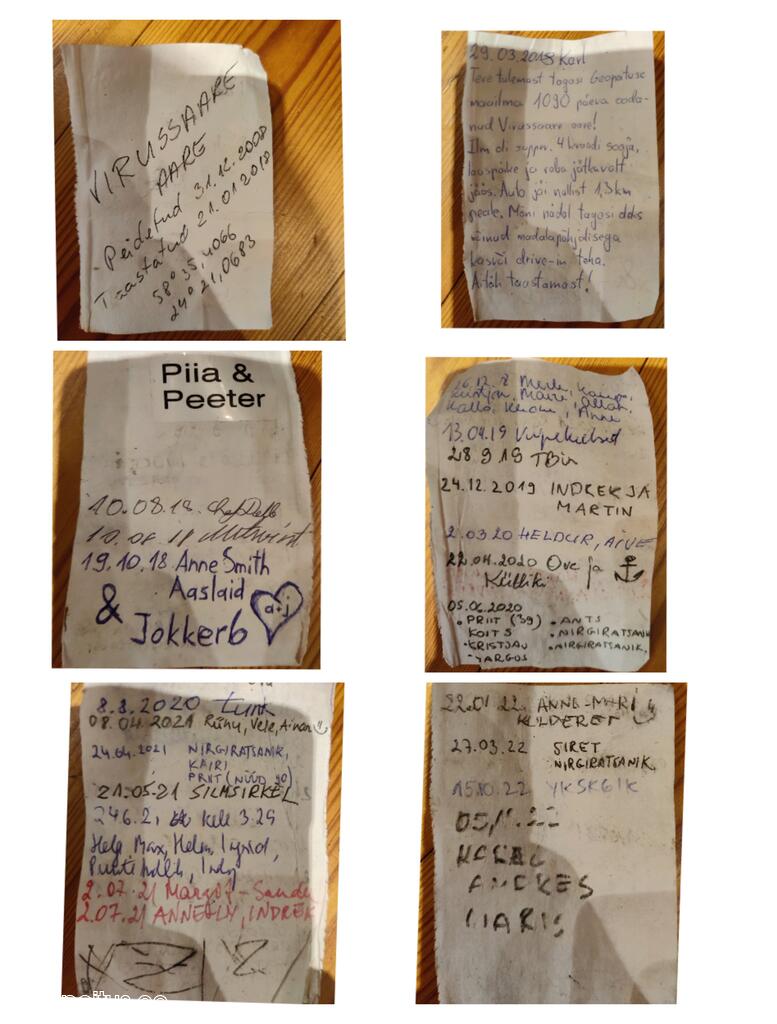 VIRUSSAARE
AARE
Peidetud 31.12.2008
Taastatud 21.01.2018
58° 35,4066
24° 21,0683
29.03.2018 Karl
Tere tulemast tagasi Geopeituse
maailma 1090 päeva ooda-
nud Virussaare aare!
Ilm oli super. 4 kraadi sooja,
lauspäike ja raba jätkuvalt
jääs. Auto jäi nullist 1,3km
peale. Mõni nädal tagasi oleks
võinud madalapõhjalisega
kasvõi drive-in teha.
Aitäh taastamast!
Piia &
Peeter
10.08.18.
10.08.18
19.10.18 Anne Smith
Aaslaid
& Jokker6 a+j
Kalla, Anne
13.04.19
28.9.19 TBin
24.12.2019 INDREK JA
MARTIN
2.03.20 HELDUR, AIVE
22.04.2020 Ove ja
Külliki
05.06.2020
• PRIIT (39) • ANTS
KOITS • NIRGIRATSANIK
• KRISTJAN • NIRGIRATSANIK.
• TARGOS
8.8.2020
08.04.2021 Rünu, Vele, Ainar
24.04.2021 NIRGIRATSANIK,
KAIRI
PRIIT (NÜÜD 40)
21.05.21 SILMSIRKEL
24.6.21 Kell 3.29
Max, Helen,
2.07.21 Margot - Sander
2.07.21 ANNELY, INDREK
22.01.22. ANNE-MARI
KULDERET
27.03.22 SIRET
NIRGIRATSANIK
15.10.22 YKSKÕIK
05.11.22
ANDRES
MARIS